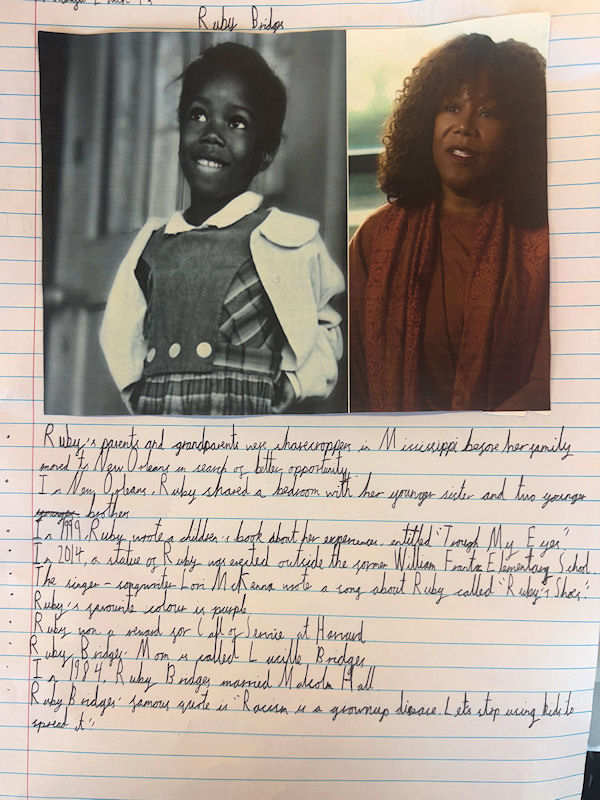 Ruby Bridges
Ruby's parents and grandparents were sharecroppers in Mississippi before her family
moved to New Orleans in search of better opportunity.
In New Orleans, Ruby shared a bedroom with her younger sister and two younger
younger brothers
In 1999, Ruby wrote a children's book about her experiences, entitled "Trough My Eyes"
In 2014, a statue of Ruby was erected outside the former William Frantz Elementary School.
The singer-songwriter Lori McKenna wrote a song about Ruby called "Ruby's Shoes".
Ruby's favourite colour is purple
Ruby won a reward for Call of Service at Harvard
Ruby Bridges' Mom is called Lucille Bridges
In 1984, Ruby Bridges married Malcolm Hall
Ruby Bridges' famous quote is "Racism is a grownup disease. Let's stop using kids to
spread it".